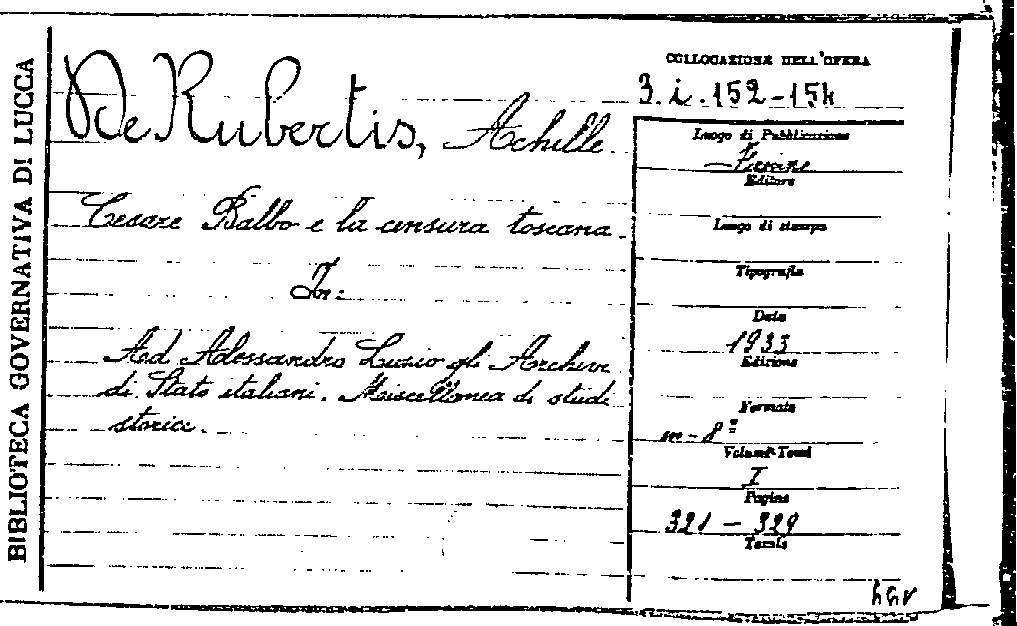 BIBLIOTECA GOVERNATIVA DI LUCCA
De Rubertis, Achille.
Cesare Balbo e la censura toscana.
In:
Ad Alessandro Luzio gli Archivi
di Stato italiani. Miscellanea di studi
storici.
COLLOCAZIONE DELL'OPERA
3. i. 152-154
Luogo di Pubblicazione
Firenze
Editore
Luogo di stampa
Tipografia
Data
1933
Edizione
Formato
in-8°
Volumi-Tomi
I
Pagine
321 - 329
Tavole